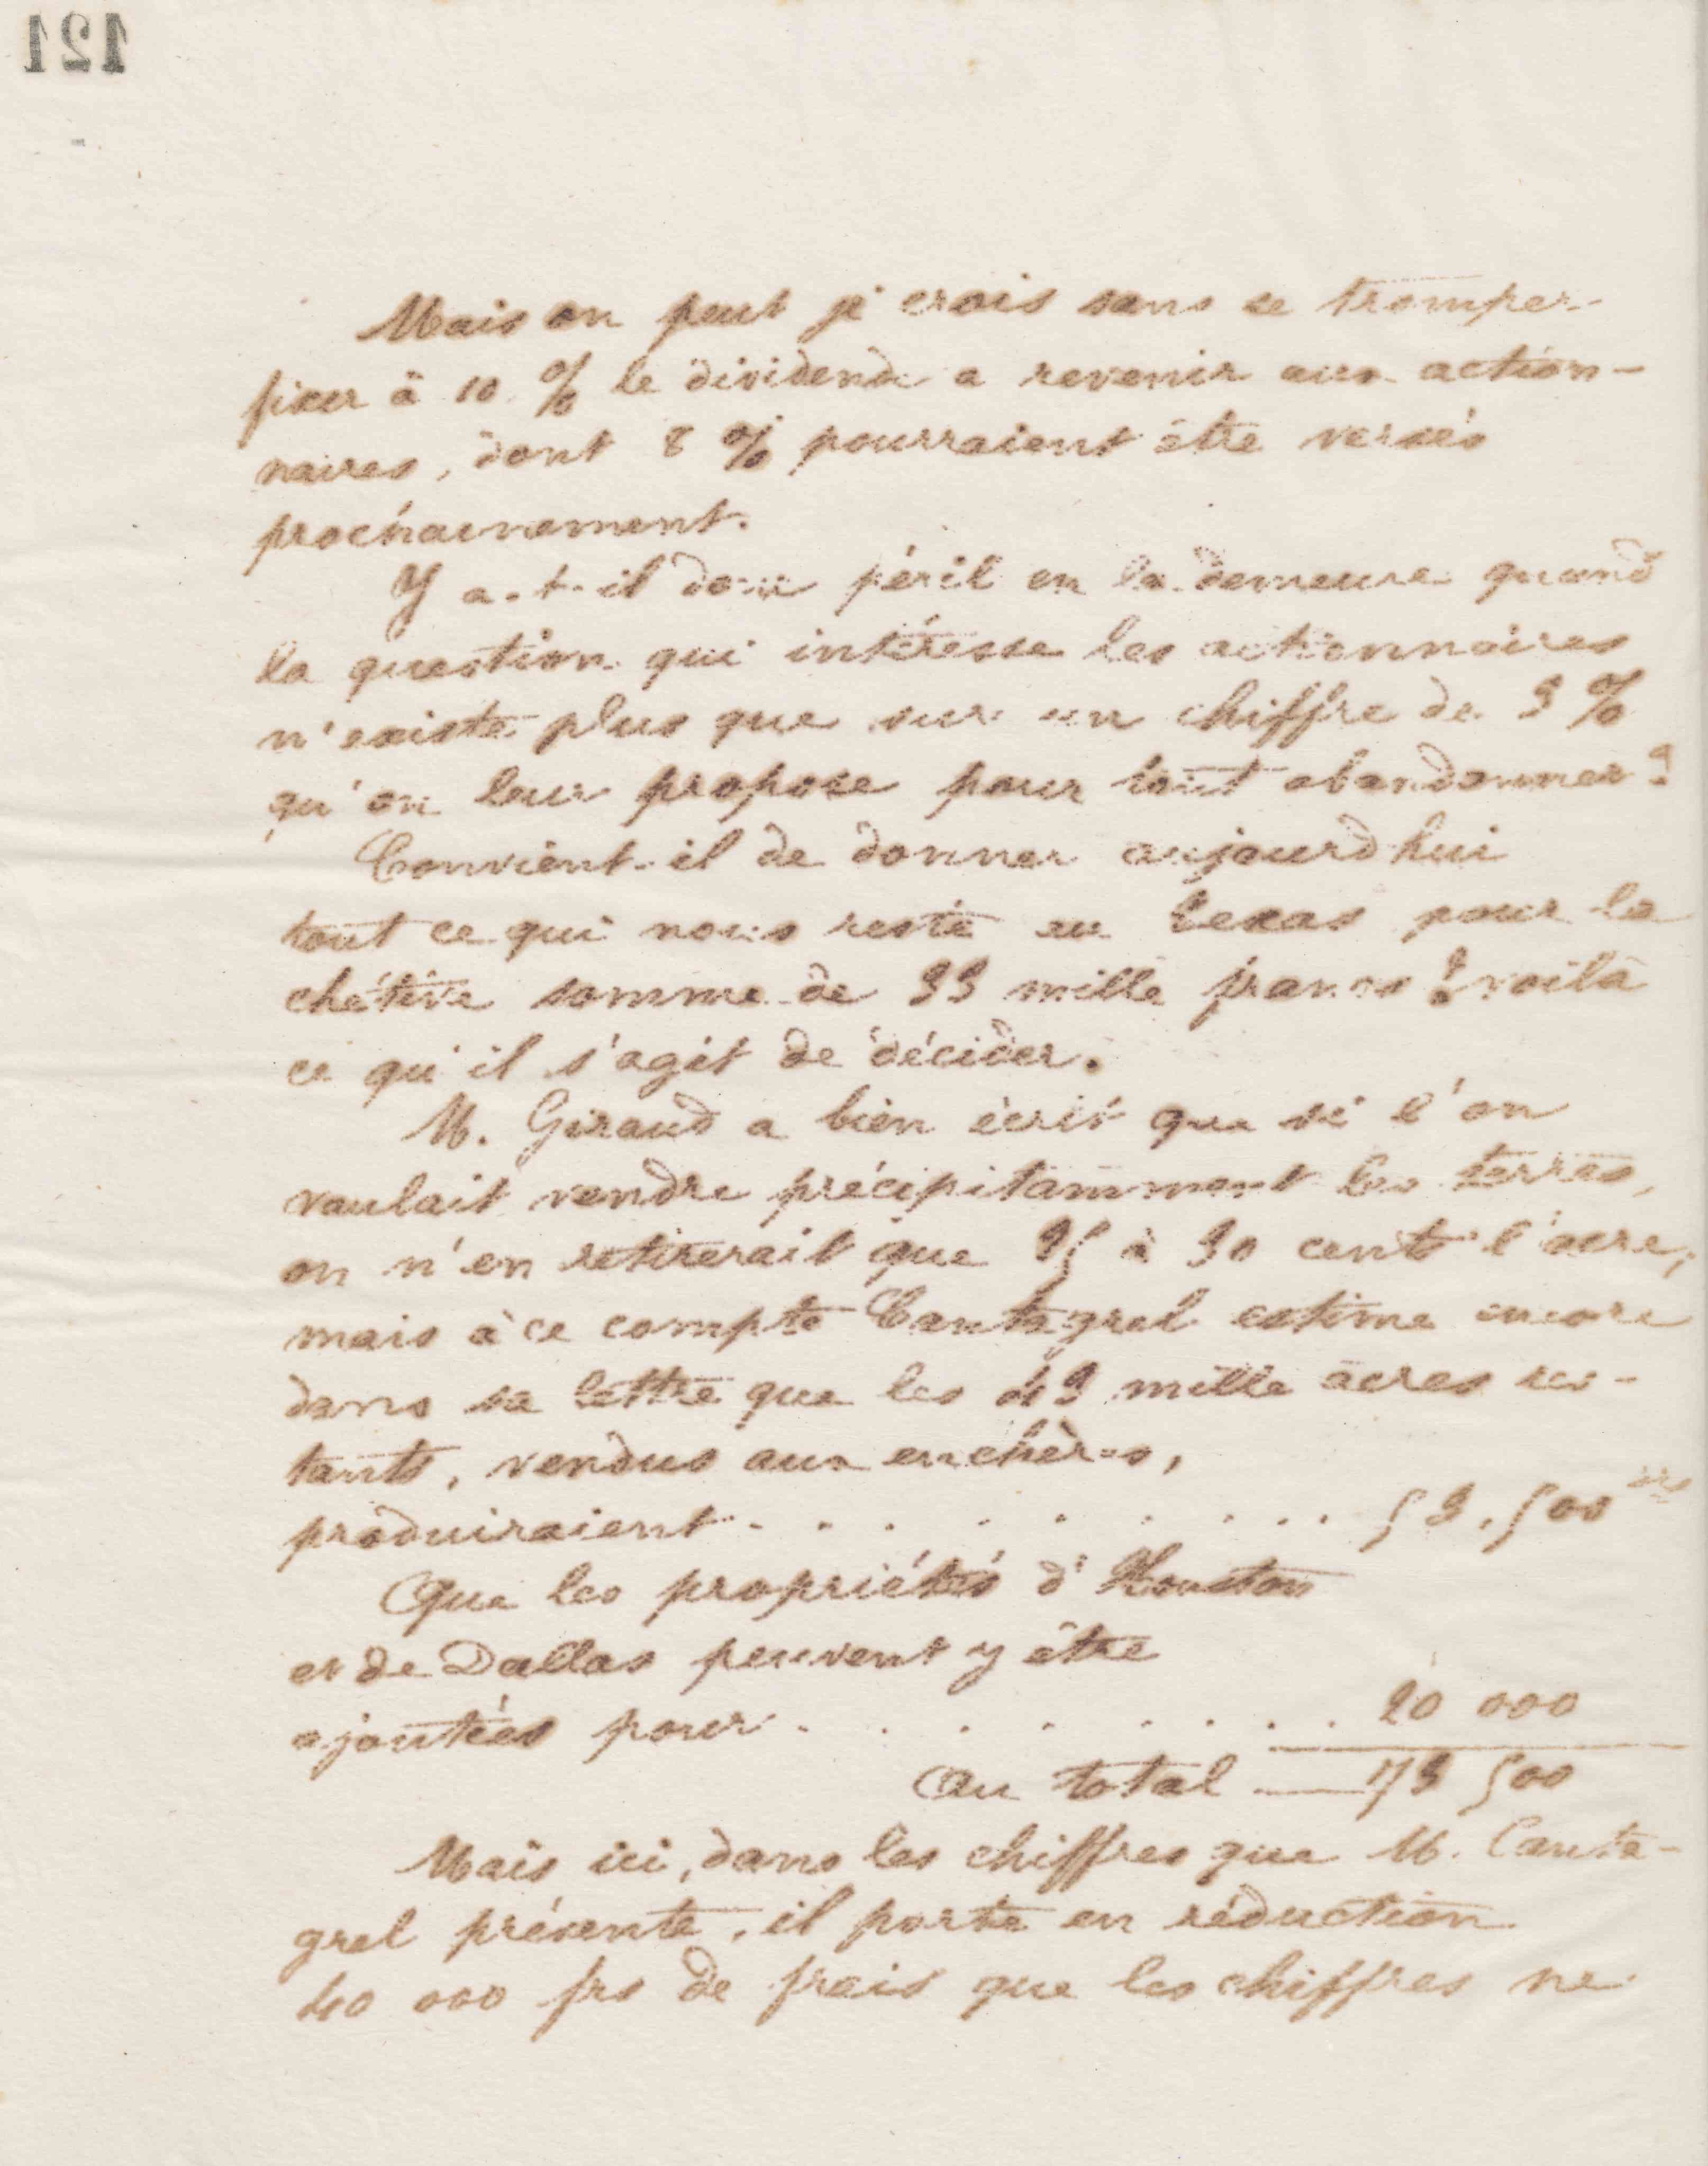 121
Mais on peut je crois sans se tromper
fixer à 10 % le dividende a revenir aux action-
naires, dont 8 % pourraient être versés
prochainement.
Y a-t-il donc péril en la demeure quand
la question qui intéresse les actionnaires
n'existe plus que sur un chiffre de 3 %
qu'on leur propose pour tout abandonner?
Convient-il de donner aujourd'hui
tout ce qui nous reste au Texas pour la
chétive somme de 33 mille francs? voilà
ce qu'il s'agit de décider.
M. Giraud a bien écrit que si l'on
voulait vendre précipitamment les terres,
on n'en retirerait que 25 à 30 cents l'acre;
mais à ce compte Cantagrel estime encore
dans sa lettre que les 43 mille acres res-
tants, vendus aux enchères,
produiraient . . . . . . . . . . 53,500 frs
Que les propriétés d'Houston
et de Dallas peuvent y être
ajoutées pour . . . . . . . . 20 000
Au total — 73 500
Mais ici, dans les chiffres que M. Canta-
grel présente, il porte en réduction
40 000 frs de frais que les chiffres ne